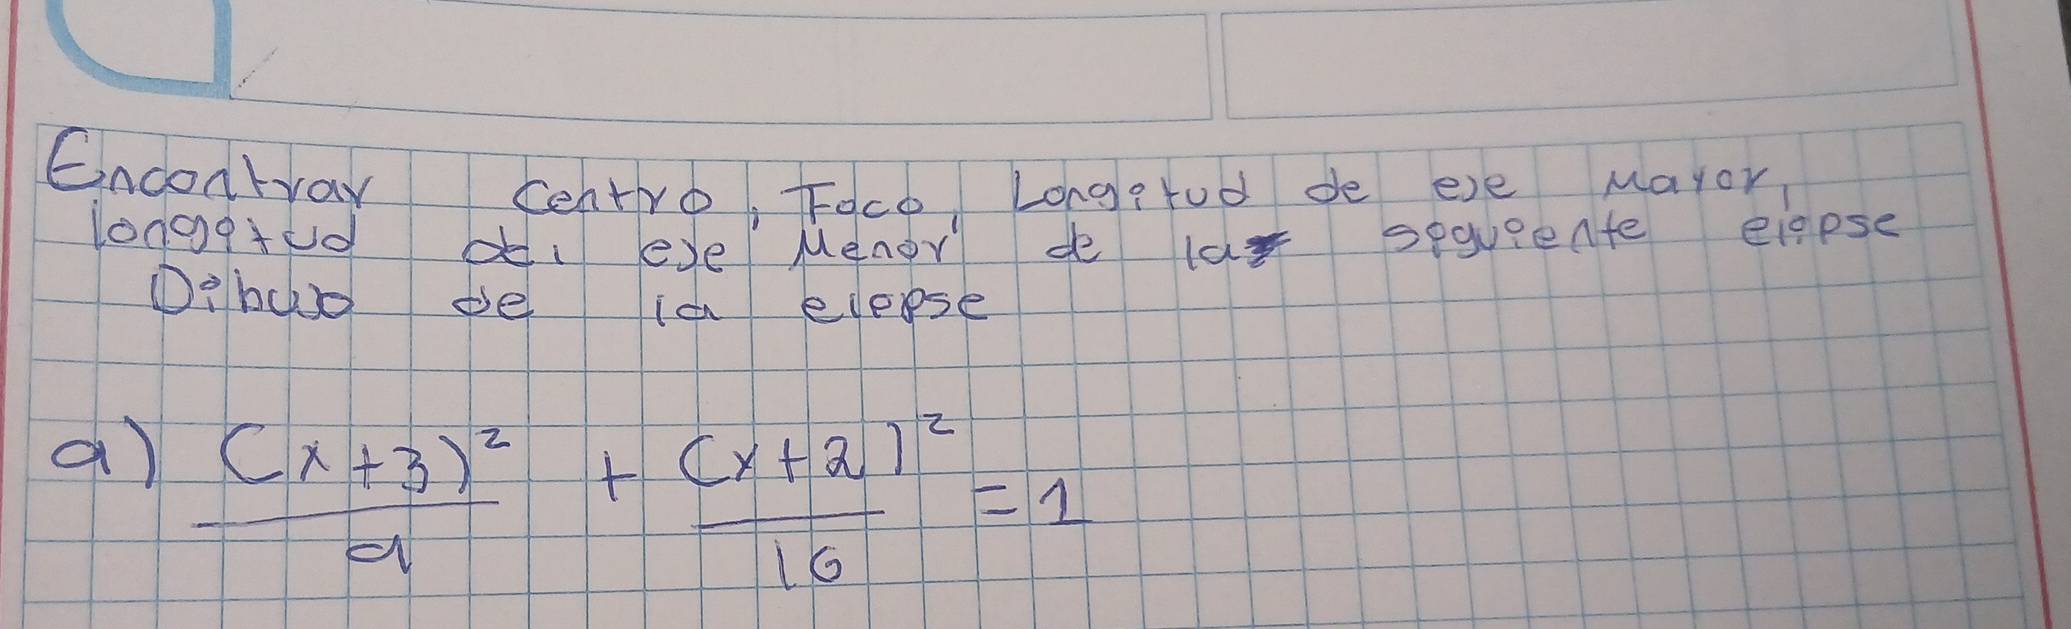 Encontrar Centro, Foco, Longitud de eje Mayor,
longitud de eje Menor de la siguiente elipse
Dibujo de la elepse
a) (x+3)²/9 + (y+2)²/16 = 1